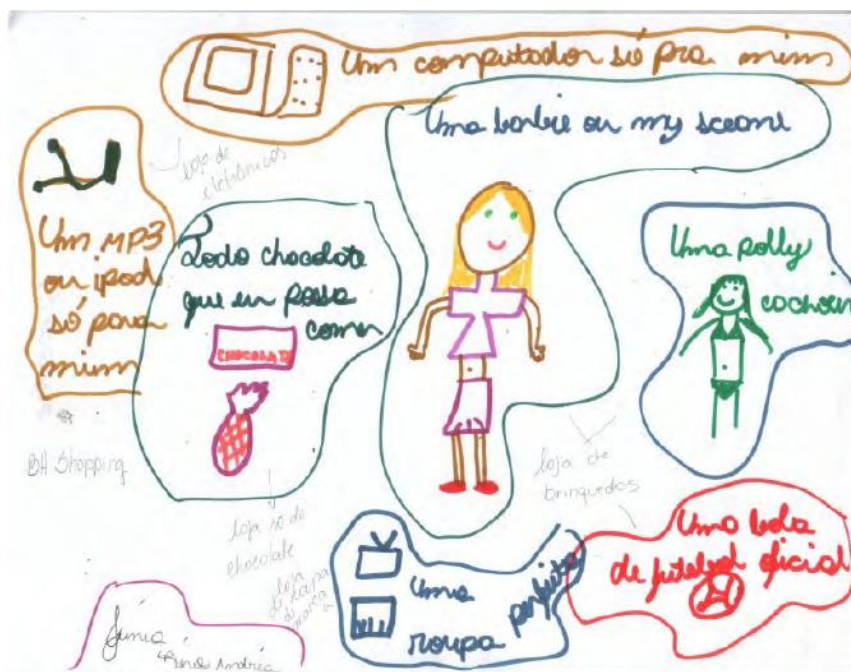 Um computador só pra mim
Uma barbie ou my sceane
loja de
eletrônicos
Um MP3
ou ipod
só para
mim
Todo chocolate
que eu possa
comer
CHOCOLATE
Uma polly
BH Shopping
loja só de
chocolate
loja de
brinquedos
loja
de roupa
de marca
Uma
roupa perfeita
Uma bola
de futebol oficial
Júnia